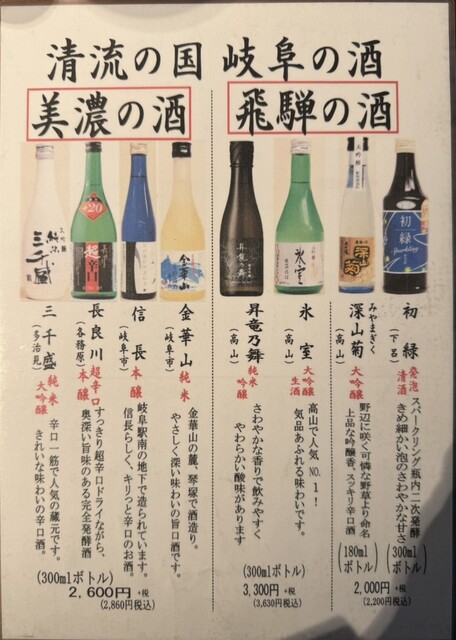 清流の国 岐阜の酒
飛騨の酒
美濃の酒
初緑
Sparkling
1
大吟醸
深山菊
氷室
昇龍の舞
金華山
超辛口
+20
大吟醸
純米
三千盛
初緑
(下呂)
発泡
清酒
スパークリング瓶内二次発酵
きめ細かい泡のさわやかな甘さ
(300mlボトル)
みやまぎく
深山菊
(高山)
大吟醸
野辺に咲く可憐な野草より命名
上品な吟醸香、スッキリ辛口酒
(180mlボトル)
2,000円 +税
(2,200円税込)
氷室
(高山)
大吟醸
生酒
高山で人気NO.1!
気品あふれる味わいです。
昇竜乃舞
(高山)
純米
吟醸
さわやかな香りで飲みやすく
やわらかい酸味があります
(300mlボトル)
3,300円 +税
(3,630円税込)
金華山
(岐阜市)
純米
金華山の麓、琴塚で酒造り。
やさしく深い味わいの旨口酒です。
信長
(岐阜市)
本醸
岐阜駅南の地下で造られています。
信長らしく、キリっと辛口のお酒。
長良川
(各務原)
超辛口
本醸
すっきり超辛口ドライながら、
奥深い旨味のある完全発酵酒
三千盛
(多治見)
純米
大吟醸
辛口一筋で人気の蔵元です。
きれいな味わいの辛口酒。
(300mlボトル)
2,600円 +税
(2,860円税込)